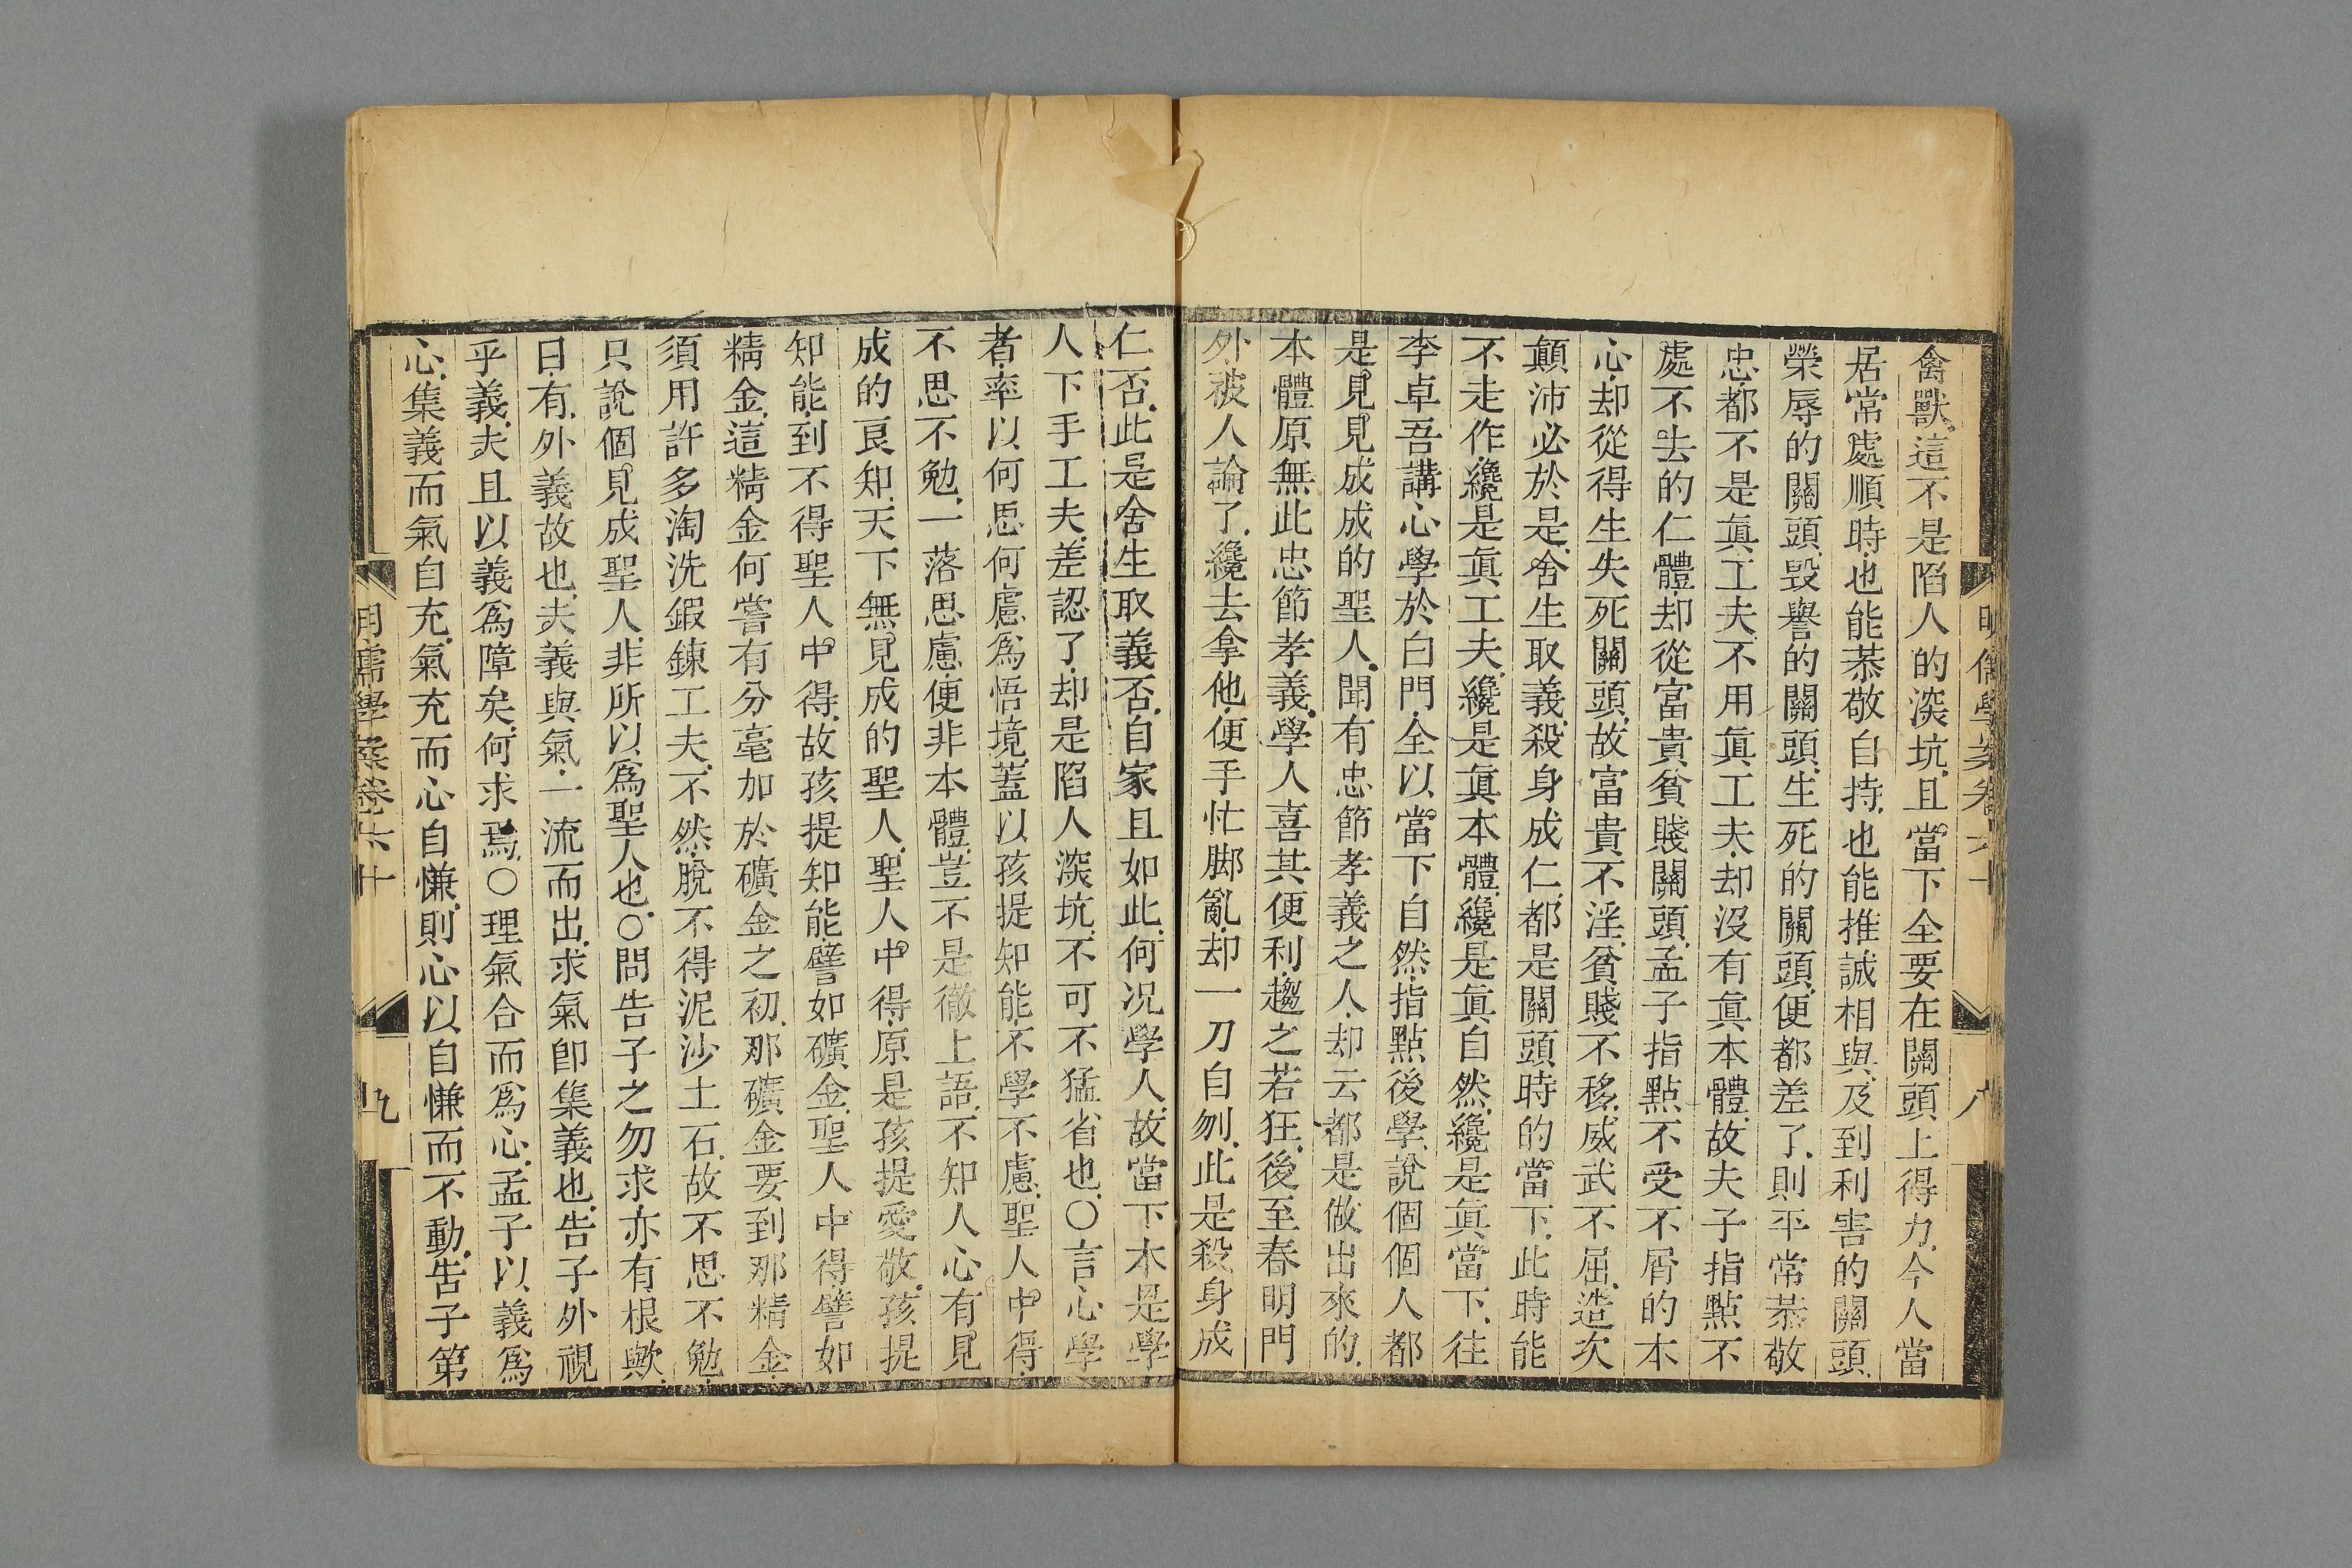 禽獸這不是陷人的深坑且當下全要在關頭上得力今人當
居常處順時也能恭敬自持也能推誠相與及到利害的關頭
榮辱的關頭毀譽的關頭生死的關頭便都差了則平常恭敬
忠都不是眞工夫不用眞工夫却沒有眞本體故夫子指點不
處不去的仁體却從富貴貧賤關頭孟子指點不受不屑的本
心却從得生失死關頭故富貴不淫貧賤不移威武不屈造次
顛沛必於是舍生取義殺身成仁都是關頭時的當下此時能
不走作纔是眞工夫纔是眞本體纔是眞自然纔是眞當下往
李卓吾講心學於白門全以當下自然指點後學說個個人都
是見見成成的聖人聞有忠節孝義之人却云都是做出來的
本體原無此忠節孝義學人喜其便利趨之若狂後至春明門
外被人論了纔去拿他便手忙脚亂却一刀自刎此是殺身成
仁否此是舍生取義否自家且如此何況學人故當下本是學
人下手工夫差認了却是陷人深坑不可不猛省也○言心學
者率以何思何慮爲悟境蓋以孩提知能不學不慮聖人中得
不思不勉一落思慮便非本體豈不是徹上語不知人心有見
成的良知天下無見成的聖人聖人中得原是孩提愛敬孩提
知能到不得聖人中得故孩提知能譬如礦金聖人中得譬如
精金這精金何嘗有分毫加於礦金之初那礦金要到那精金
須用許多淘洗鍛鍊工夫不然脫不得泥沙土石故不思不勉
只說個見成聖人非所以爲聖人也○問告子之勿求亦有根歟
曰有外義故也夫義與氣一流而出求氣卽集義也告子外視
乎義夫且以義爲障矣何求焉○理氣合而爲心孟子以義爲
心集義而氣自充氣充而心自慊則心以自慊而不動告子第
明儒學案卷六十
九